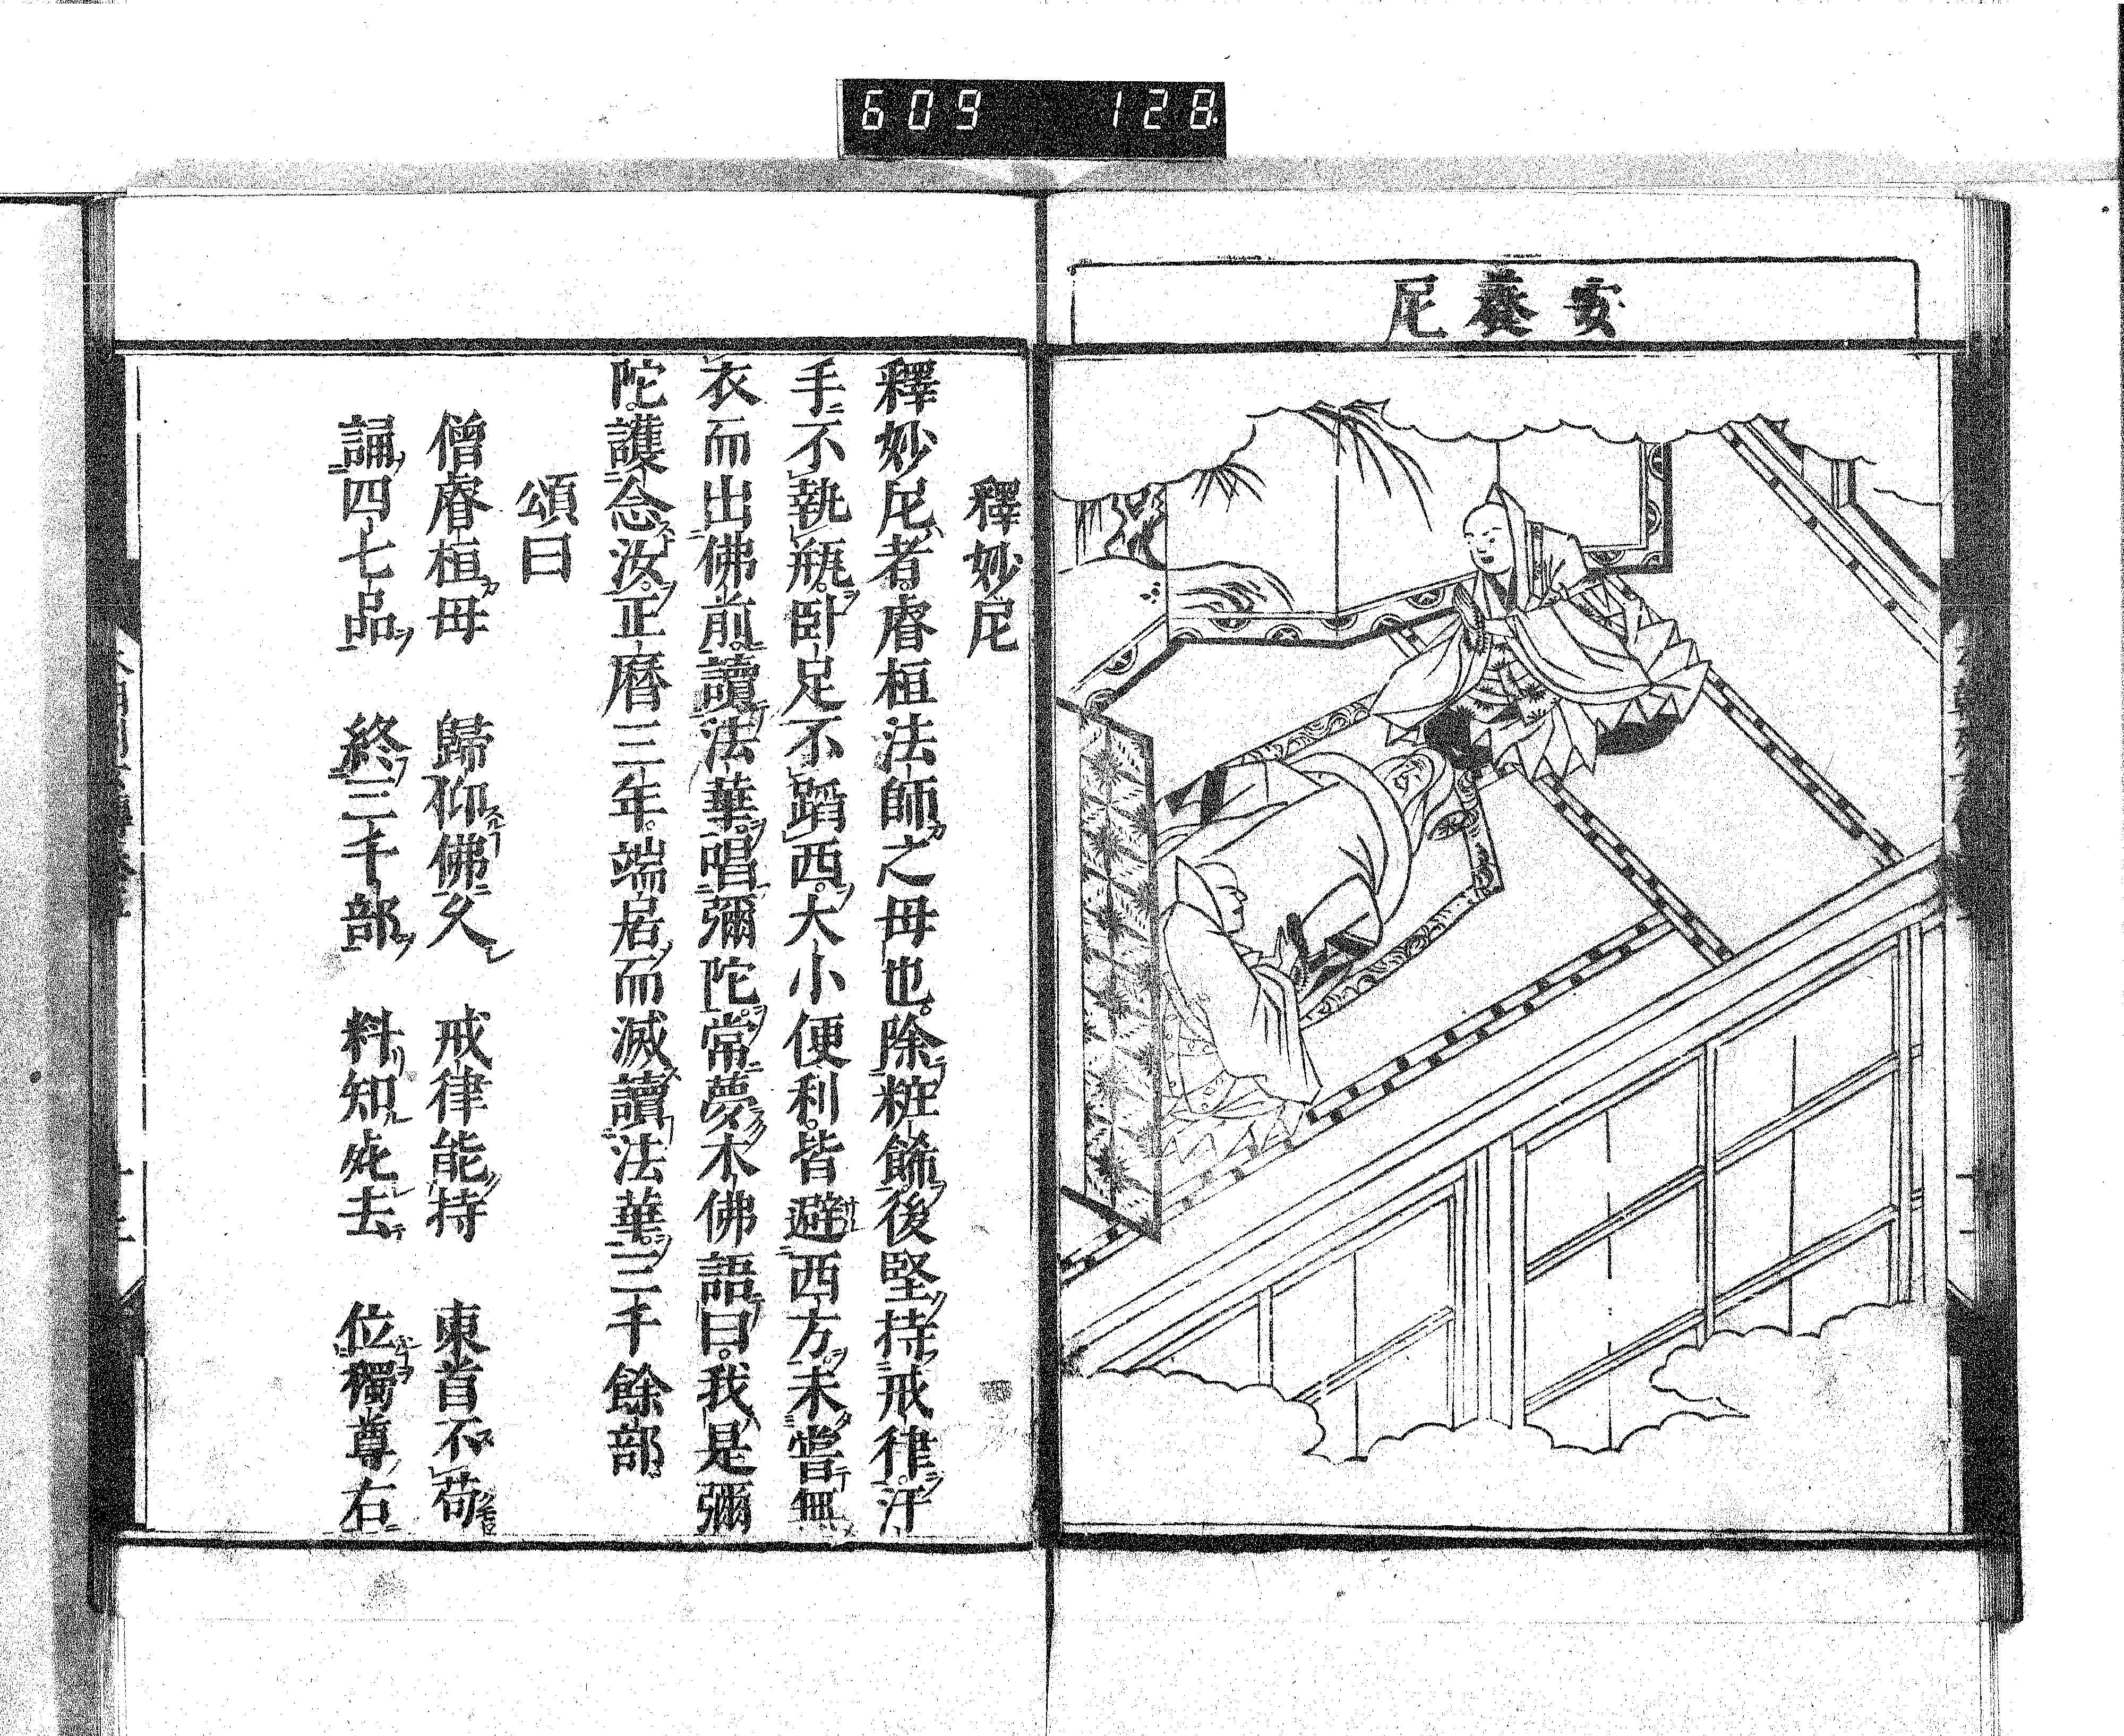 609 128
安養尼
釋妙尼
釋妙尼者睿桓法師之母也除粧餙後堅持戒律汗
手不執瓶臥足不蹈西大小便利皆避西方未嘗無
衣而出佛前讀法華唱彌陀常夢木佛語曰我是彌
陀護念汝正曆三年端居而滅讀法華三千餘部
頌曰
僧睿桓母 歸仰佛久 戒律能持 東首不苟
誦四七品 終三千部 料知死去 位獨尊右